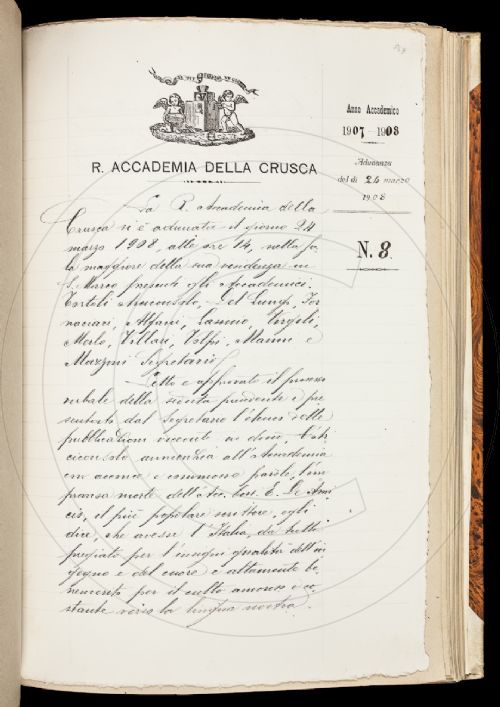 Anno Accademico
1907-1908
R. ACCADEMIA DELLA CRUSCA
Adunanza
del dì 24 marzo
1908
N. 8.
La R. Accademia della
Crusca si è adunata il giorno 24
marzo 1908 alle ore 14, nella sa-
la maggiore della sua residenza in
S. Marco presenti gli Accademici:
Tortoli Arciconsolo, Del Lungo, For
naciari, Alfani, Casini, Vergoli,
Merlo, Villari, Volpi, Mannu e
Mazzoni Segretario.
Letto e approvato il processo
verbale della seduta precedente e pre
sentato dal Segretario l'elenco delle
pubblicazioni ricevute in dono, l'Ar
ciconsolo annunzia all'Accademia
con acconce e commosse parole, l'im
provvisa morte dell'Acc. Corr. E. De Ami
cis, il più popolare scrittore, egli
dice, che avesse l'Italia, da tutti
pregiato per l'insigni qualità dell'in
gegno e del cuore e altamente be
nemerito per il culto amoroso e co
stante verso la lingua nostra.